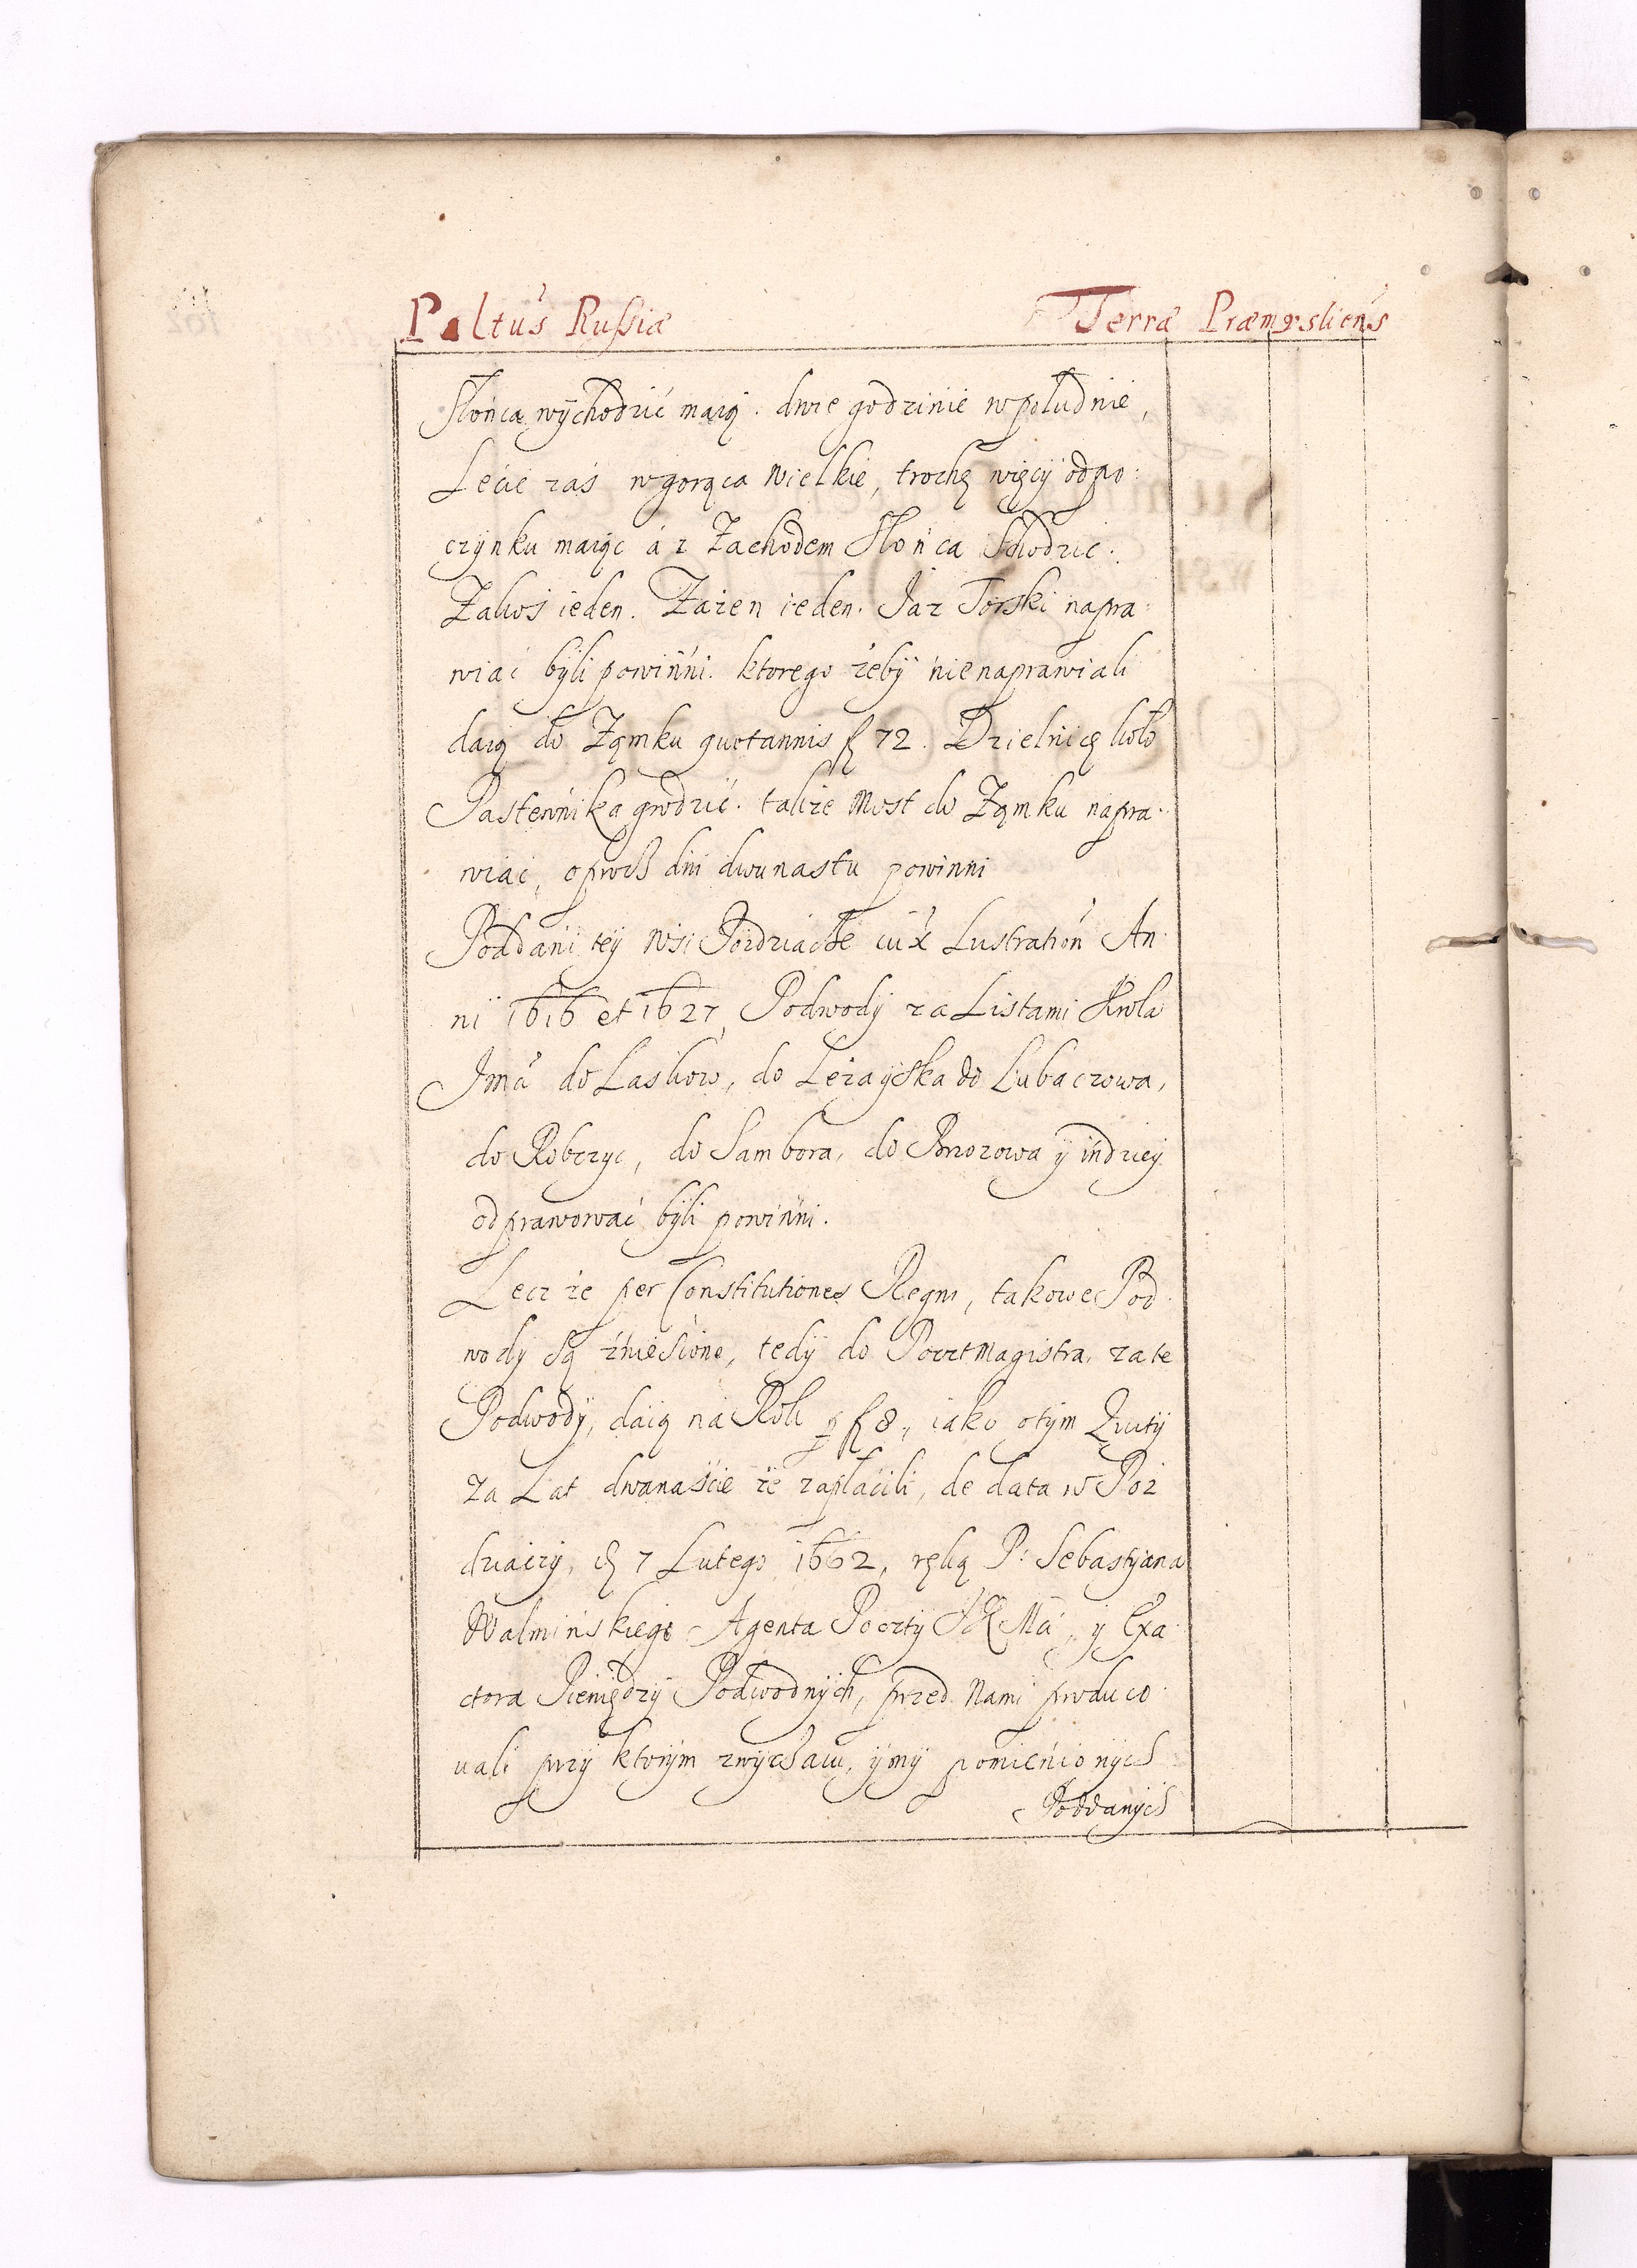 Paltus Russiæ Terræ Præmysliens
Słońca wychodzić maią. dwie godzinie wpołudnie,
Lecie zaś wgorąca wielkie, trochę więcy odpo:
czynku maiąc á z Zachodem Słońca Schodzic.
Zakos ieden. Zażen ieden. Jaz Torski napra:
wiać byli powinni. ktorego żeby nienaprawiali
daią do Zamku quotannis fl 72. Dzielnicę koło
Pastewnika grodzić. także Most do Zamku napra:
wiać, oprocz dni dwunastu powinni
Poddani tey wsi Pozdziacze iux Lustration An:
ni 1616 et 1627, Podwody za Listami Krola
Jmci do Laskow, do Leżayska do Lubaczowa,
do Robczyc, do Sambora, do Brzozowa y indziey
odprawować byli powinni.
Lecz że per Constitutiones Regni, takowe Pod:
wody są zniesione, tedy do Pocztmagistra. za te
Podwody, daią na Rok p fl 8., iako otym Qwity
za Lat dwanaście że zapłacili, de data w Poz
dziaczy, d 7 Lutego 1662, ręką P: Sebastyana
Walminskiego Agenta Poczty JKMci, y Exa:
ctora Pieniędzy Podwodnych, przed Nami produco:
uali przy ktorym zwyczaiu, ymy pomienionych
Poddanych